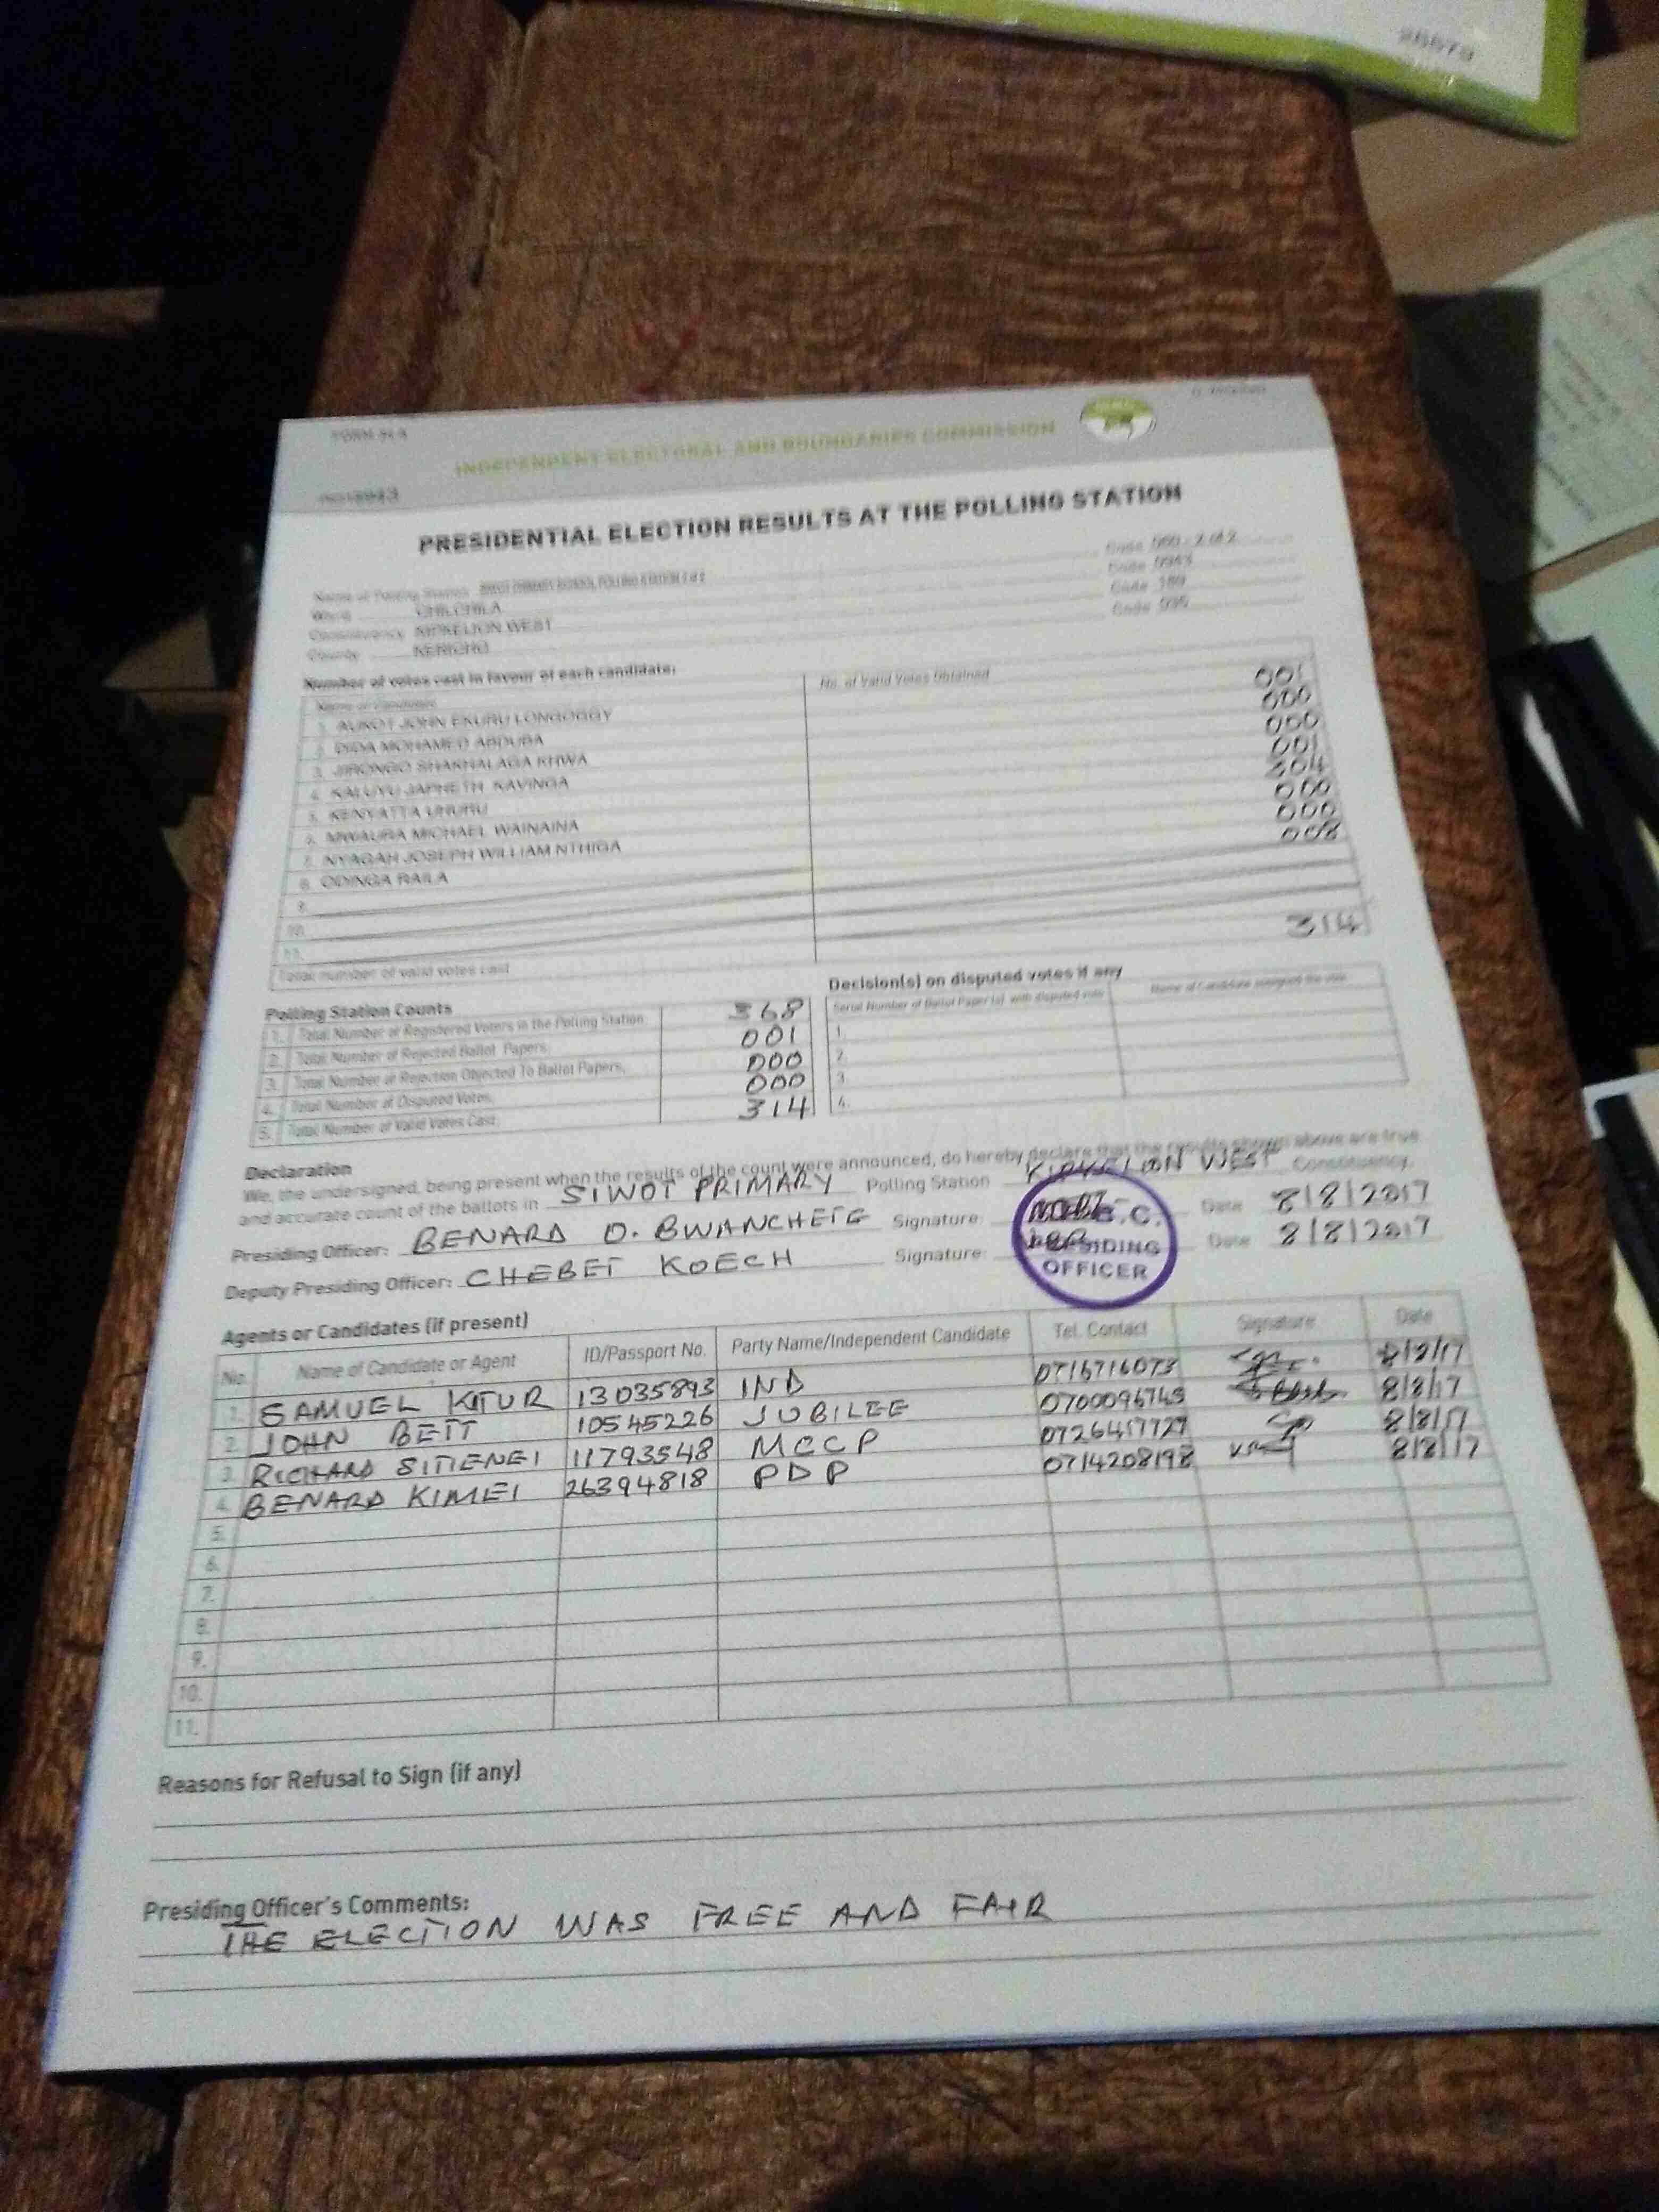 26673
FORM 34A
INDEPENDENT ELECTORAL AND BOUNDARIES COMMISSION
PRESIDENTIAL ELECTION RESULTS AT THE POLLING STATION
Name of Polling Station PRIMARY SCHOOL POLLING STATION 2 of 2 Code 2 of 2
Ward CHILCHILA Code
Constituency KIPKELION WEST Code 189
County KERICHO Code 035
Number of votes cast in favour of each candidate:
Name of Candidate No. of Valid Votes Obtained
1. AUKOT JOHN EKURU LONGOGGY 001
2. DIDA MOHAMED ABDUBA 000
3. JIRONGO SHAKHALAGA KHWA 000
4. KALUYU JAPHETH KAVINGA 001
5. KENYATTA UHURU 304
6. MWAURA MICHAEL WAINAINA 000
7. NYAGAH JOSEPH WILLIAM NTHIGA 000
8. ODINGA RAILA 008
9.
10.
11.
Total number of valid votes cast 314
Polling Station Counts
1. Total Number of Registered Voters in the Polling Station 368
2. Total Number of Rejected Ballot Papers, 001
3. Total Number of Rejection Objected To Ballot Papers, 000
4. Total Number of Disputed Votes, 000
5. Total Number of Valid Votes Cast, 314
Decision(s) on disputed votes if any
Serial Number of Ballot Paper (s) with disputed vote Name of Candidate assigned the vote
1.
2.
3.
4.
Declaration
We, the undersigned, being present when the results of the count were announced, do hereby declare that the results shown above are true
and accurate count of the ballots in SIWOT PRIMARY Polling Station KIPKELION WEST Constituency,
Presiding Officer: BENARD O. BWANCHETE Signature: Date 8/8/2017
Deputy Presiding Officer: CHEBET KOECH Signature: Date 8/8/2017
PRESIDING
OFFICER
Agents or Candidates (if present)
No. Name of Candidate or Agent ID/Passport No. Party Name/Independent Candidate Tel. Contact Signature Date
1. SAMUEL KITUR 13035893 IND 0716716073 8/8/17
2. JOHN BETT 10545226 JUBILEE 0700096745 8/8/17
3. RICHARD SITIENEI 11793548 MCCP 8/8/17
4. BENARD KIMEI 26394818 PDP 0714208198 8/8/17
5.
6.
7.
8.
9.
10.
11.
Reasons for Refusal to Sign (if any)
Presiding Officer's Comments:
THE ELECTION WAS FREE AND FAIR